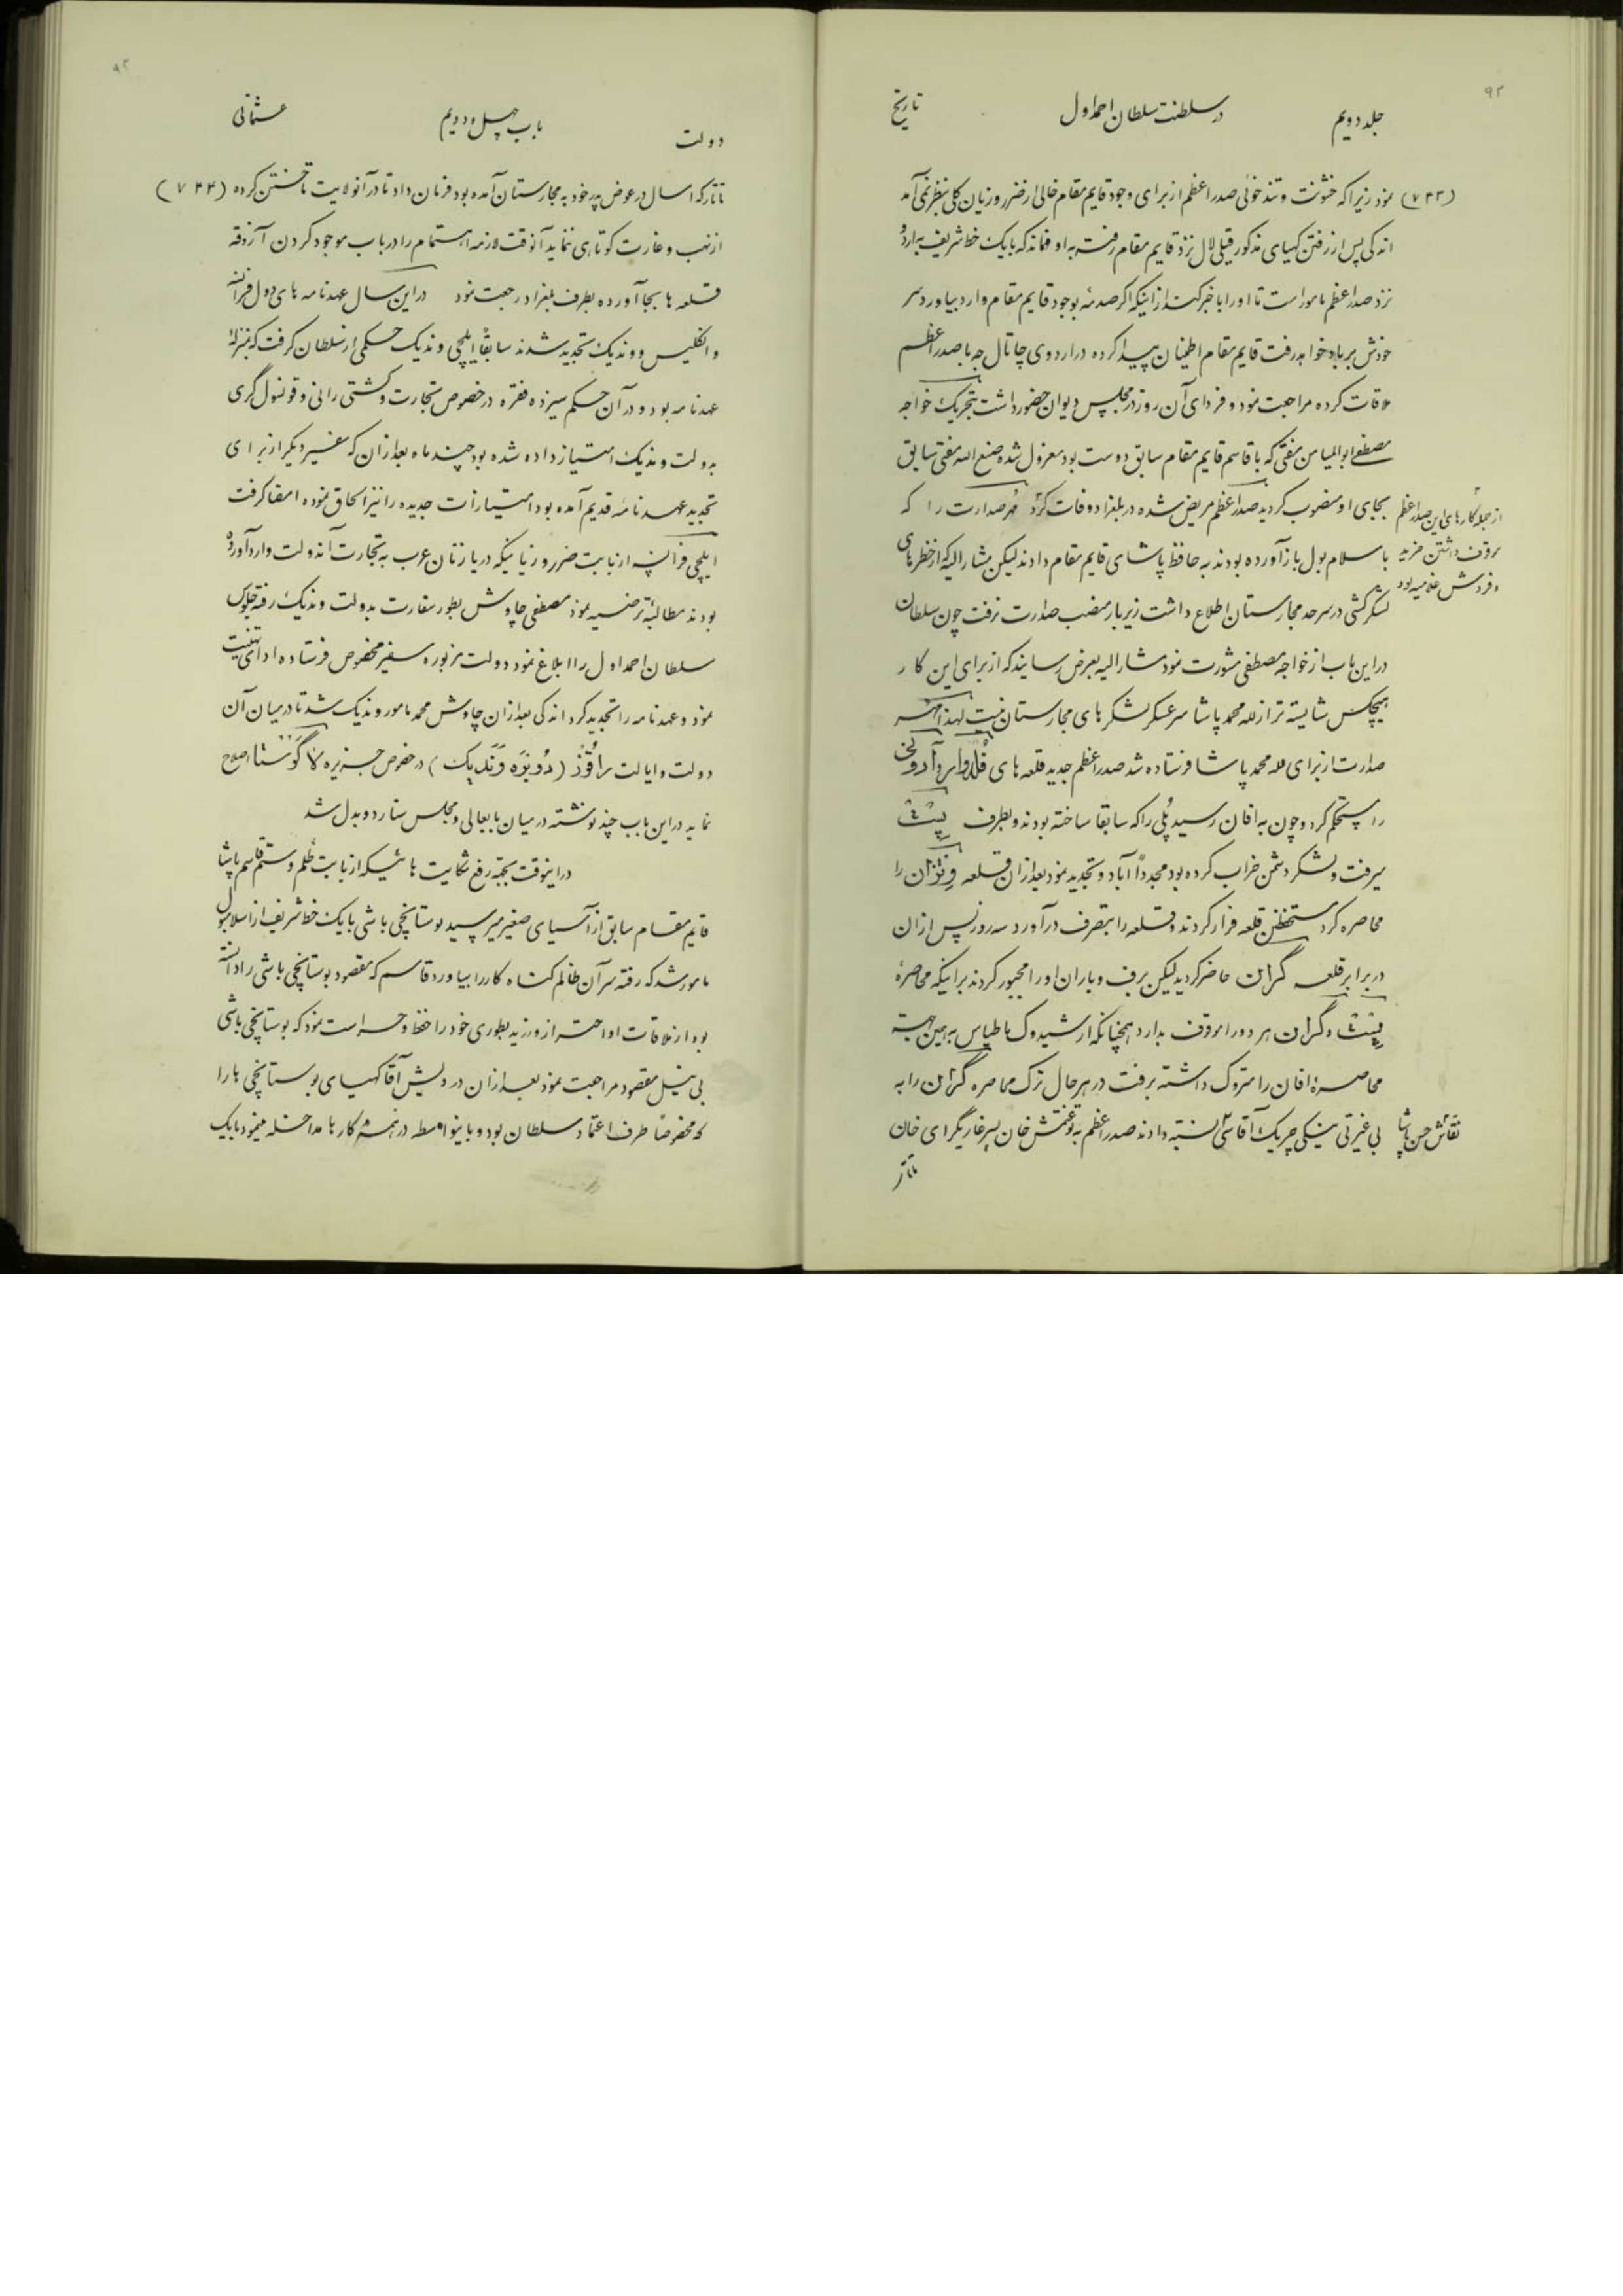 ۹۲
جلد دویم
در سلطنت سلطان احمد اول
تاریخ
(۷۴۳) نمود زیرا که خشونت و تندخوئی صدراعظم از برای وجود قایم مقام خالی از ضرر و زیان کلی بنظر نمی آمد
اندکی پس از رفتن کهیای مذکور قبلی لال نزد قایم مقام رفته به او فهماند که با یک خط شریف به اردو
نزد صدراعظم مامور است تا او را با خبر کند از اینکه اگر صدمهٔ بوجود قایم مقام وارد بیاورد سر
خودش بر باد خواهد رفت قایم مقام اطمنان پیدا کرده در اردوی چاتال جه با صدراعظم
ملاقات کرده مراجعت نمود و فردای آن روز در مجلس دیوان حضور داشت بتحریک خواجه
مصطفی ابوالمیامن مفتی که با قاسم قایم مقام سابق دوست بود معزول شده صنع الله مفتی سابق
بجای او منصوب کردید صدراعظم مریض شده در بلغراد وفات کرد مهر صدارت را که
از جمله کارهای این صدراعظم
باسلامبول باز آورده بودند به حافظ پاشای قایم مقام دادند لیکن مشارالیه از خطرهای
موقوف داشتن خرید
و فروش غلامیه بود
لشکرکشی در سرحد مجارستان اطلاع داشت زیر بار منصب صدارت نرفت چون سلطان
در این باب از خواجه مصطفی مشورت نمود مشارالیه بعرض رسانید که از برای این کار
هیچکس شایسته تر از لله محمد پاشا سرعسکر لشکرهای مجارستان نیست لهذا مهر
صدارت از برای لله محمد پاشا فرستاده شد صدراعظم جدید قلعه های
را مستحکم کرد و چون به افان رسید پُلی را که سابقا ساخته بودند و بطرف پِشت
میرفت و لشکر دشمن خراب کرده بود مجدداً آباد و تجدید نمود بعد از ان قلعه وِتزان را
محاصره کرد مستحفظین قلعه فرار کردند و قلعه را بتصرف درآورد سه روز پس از ان
در برابر قلعه گران حاضر کردید لیکن برف و باران او را مجبور کردند بر اینکه محاصرهٔ
پِشت و گران هر دو را موقوف بدارد همچنانکه ارشیدوک ماطیاس بهمین جهة
محاصرهٔ افان را متروک داشته برفت در هر حال ترک محاصره گران را به
بی غیرتی ینیکی چریک آقاسی نسبت دادند صدراعظم به توغتمش خان پسر غازیگرای خان
نقاش حسن پاشا
تاتار
۹۲
دولت
باب چهل و دویم
عثمانی
تاتار که امسال در عوض پدر خود به مجارستان آمده بود فرمان داد تا در آنولایت تاختن کرده (۷۴۴)
از نهب و غارت کوتاهی ننماید آنوقت لازمه اهتمام را در باب موجود کردن آزوقه
قلعه ها بجا آورده بطرف بلغراد رجعت نمود در این سال عهدنامه های دول فرانسه
و انکلیس و وندیک تجدید شدند سابقاً ایلچی وندیک حکمی از سلطان کرفت که بمنزلهٔ
عهدنامه بود و در آن حکم سیزده فقره در خصوص تجارت و کشتی رانی و قونسول گری
بدولت وندیک امتیاز داده شده بود چند ماه بعد از ان که سفیر دیکر از برای
تجدید عهدنامهٔ قدیم آمده بود امتیازات جدیده را نیز الحاق نموده امضا کرفت
ایلچی فرانسه از بابت ضرر و زیانیکه دریازنان عرب به تجارت آندولت وارد آورده
بودند مطالبهٔ ترضیه نمود مصطفی چاوش بطور سفارت بدولت وندیک رفته جلوس
سلطان احمد اول را ابلاغ نمود دولت مزبوره سفیر مخصوص فرستاده ادای تهنیت
نمود و عهدنامه را تجدید کرد اندکی بعد از ان چاوش محمد مامور وندیک شد تا در میان آن
دولت و ایالت راقُوز (دُوبرَه وَنَدیک) در خصوص جزیره لاگوستا اصلاح
نماید در این باب چند نوشته در میان بابعالی و مجلس سنا رد و بدل شد
در اینوقت بجهة رفع شکایت هائیکه از بابت ظلم و ستم قاسم پاشا
قایم مقام سابق از آسیای صغیر میرسید بوستانجی باشی با یک خط شریف از اسلامبول
مامور شد که رفته سر آن ظالم کناه کار را بیاورد قاسم که مقصود بوستانجی باشی را دانسته
بود از ملاقات او احتراز ورزید بطوری خود را حفظ و حراست نمود که بوستانجی باشی
بی نیل مقصود مراجعت نمود بعد از ان درویش آقا کهیای بوستانجی ها را
که مخصوصاً طرف اعتماد سلطان بود و باینواسطه در همهٔ کارها مداخله مینمود با یک